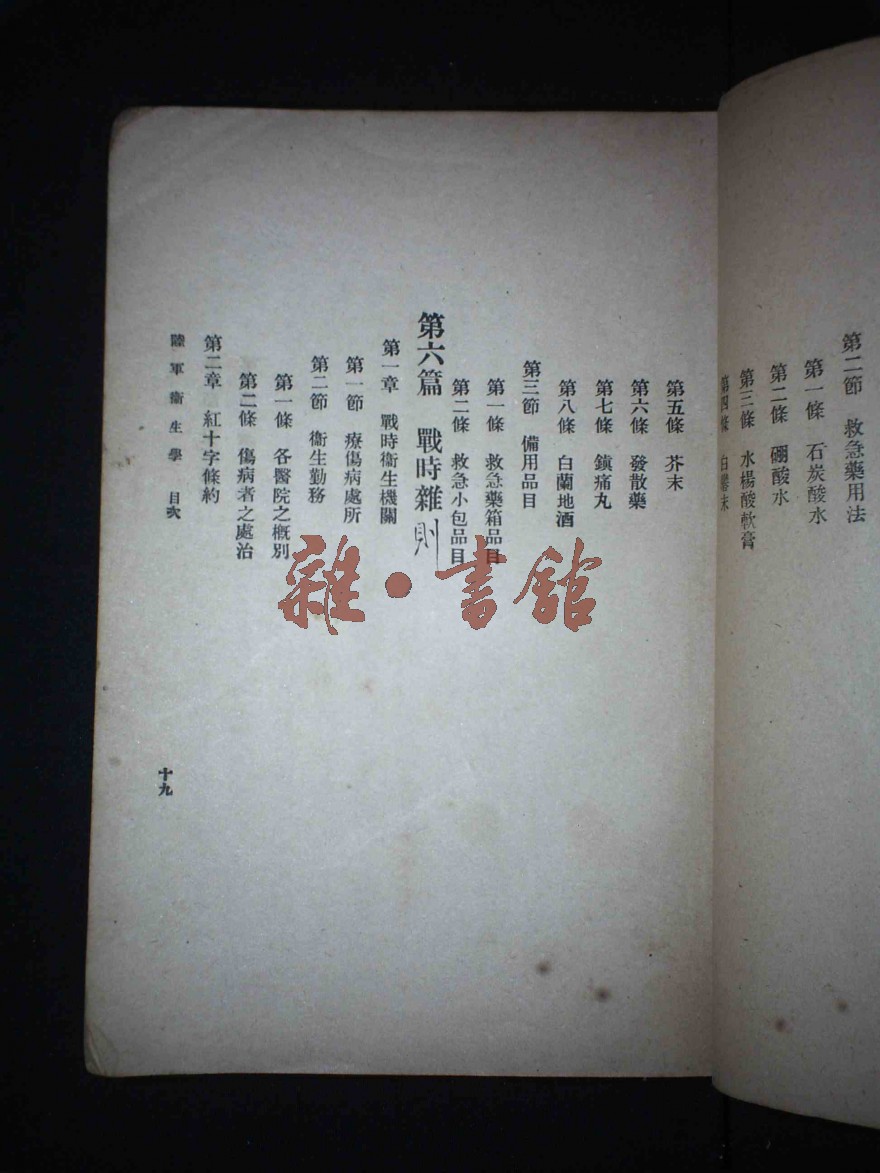 第二節 救急藥用法
第一條 石炭酸水
第二條 硼酸水
第三條 水楊酸軟膏
第四條 白礬末
第五條 芥末
第六條 發散藥
第七條 鎮痛丸
第八條 白蘭地酒
第三節 備用品目
第一條 救急藥箱品目
第二條 救急小包品目
第六篇 戰時雜則
第一章 戰時衞生機關
第一節 療傷病處所
第二節 衞生勤務
第一條 各醫院之概別
第二條 傷病者之處治
第二章 紅十字條約
陸軍衞生學 目次
十九
雜·書館